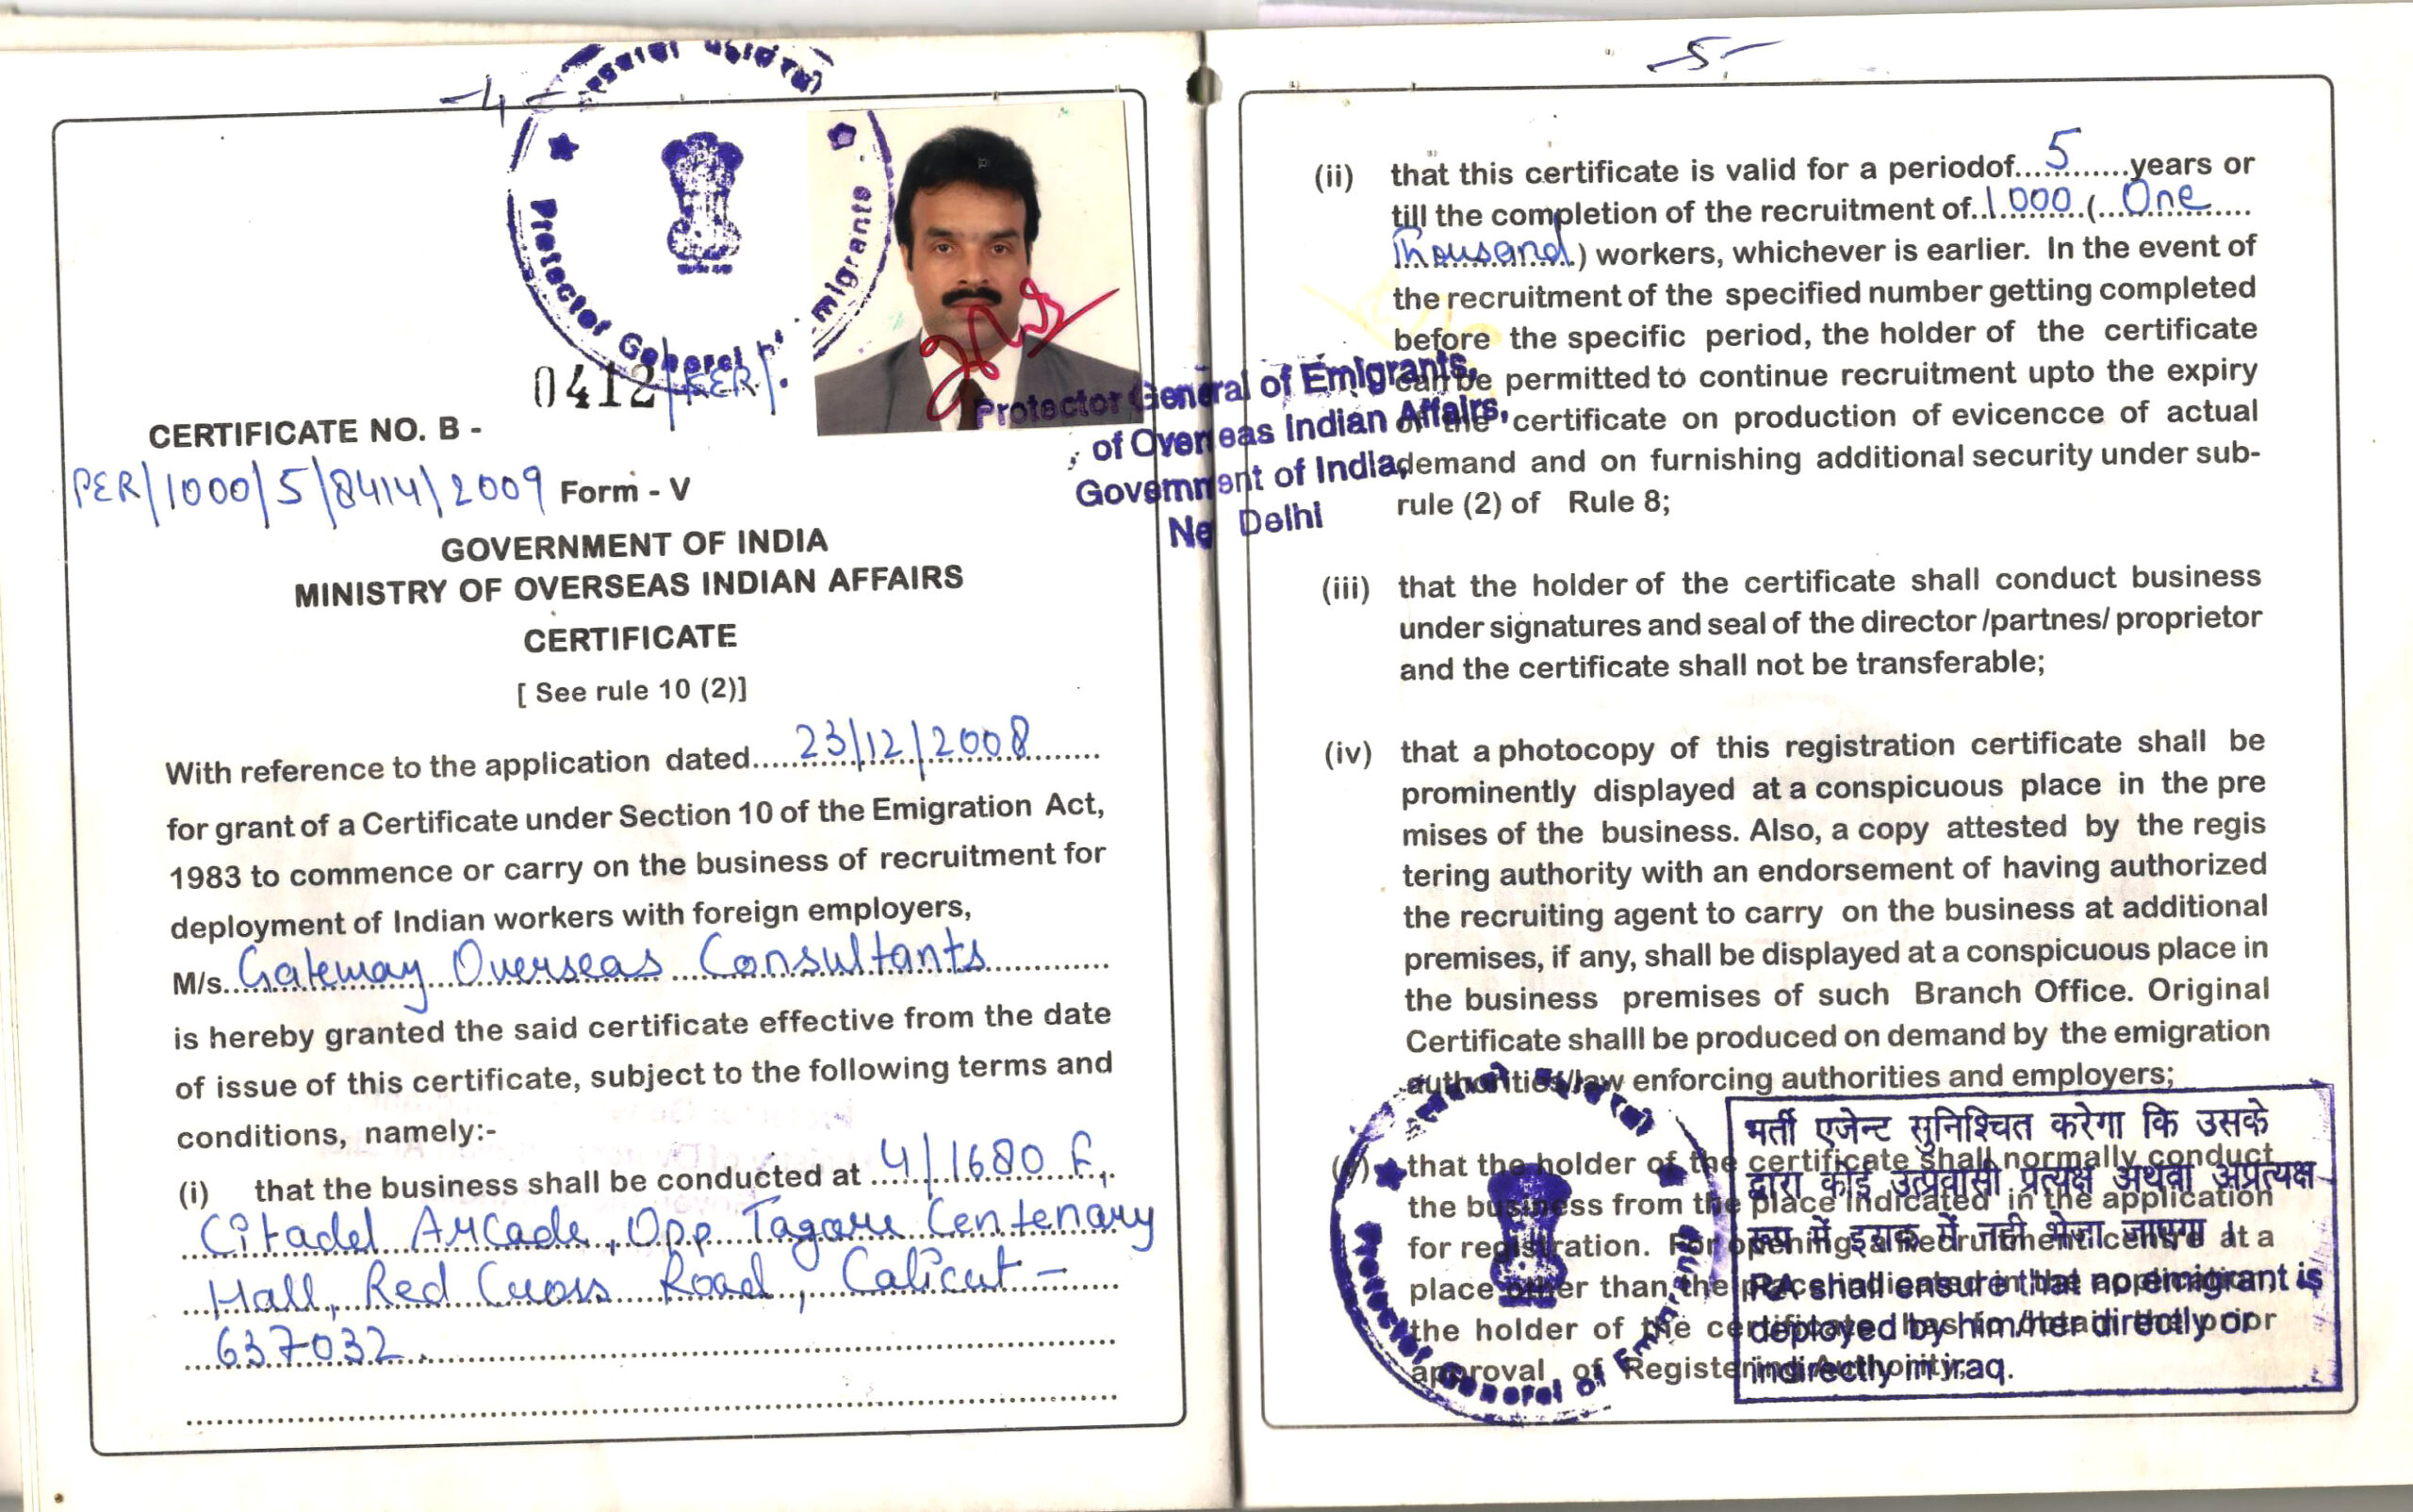 -4-
Protector General
migrants
0412/PER/.
CERTIFICATE NO. B -
PER/1000/5/8414/2009 Form - V
GOVERNMENT OF INDIA
MINISTRY OF OVERSEAS INDIAN AFFAIRS
CERTIFICATE
[ See rule 10 (2)]
With reference to the application dated 23/12/2008
for grant of a Certificate under Section 10 of the Emigration Act,
1983 to commence or carry on the business of recruitment for
deployment of Indian workers with foreign employers,
M/s. Gateway Overseas Consultants
is hereby granted the said certificate effective from the date
of issue of this certificate, subject to the following terms and
conditions, namely:-
(i) that the business shall be conducted at 4/1680 F,
Citadel Arcade, Opp Tagore Centenary
Hall, Red Cross Road, Calicut -
637032.
Protector General of Emigrants,
of Overseas Indian Affairs,
Government of India,
Ne Delhi
-5-
(ii) that this certificate is valid for a periodof 5 years or
till the completion of the recruitment of 1000 ( One
Thousand ) workers, whichever is earlier. In the event of
the recruitment of the specified number getting completed
before the specific period, the holder of the certificate
can be permitted to continue recruitment upto the expiry
of the certificate on production of evicencce of actual
demand and on furnishing additional security under sub-
rule (2) of Rule 8;
(iii) that the holder of the certificate shall conduct business
under signatures and seal of the director /partnes/ proprietor
and the certificate shall not be transferable;
(iv) that a photocopy of this registration certificate shall be
prominently displayed at a conspicuous place in the pre
mises of the business. Also, a copy attested by the regis
tering authority with an endorsement of having authorized
the recruiting agent to carry on the business at additional
premises, if any, shall be displayed at a conspicuous place in
the business premises of such Branch Office. Original
Certificate shalll be produced on demand by the emigration
authorities/law enforcing authorities and employers;
(v) that the holder of the certificate shall normally conduct
the business from the place indicated in the application
for registration. For opening a Recruitment centre at a
place other than the place indicated in the application,
the holder of the certificate has to obtain the prior
approval of Registering Authority;
Protector General of Emigrants
भर्ती एजेन्ट सुनिश्चित करेगा कि उसके
द्वारा कोई उत्प्रवासी प्रत्यक्ष अथवा अप्रत्यक्ष
रूप में इराक में नहीं भेजा जाएगा।
RA shall ensure that no emigrant is
deployed by him/her directly or
indirectly in iraq.